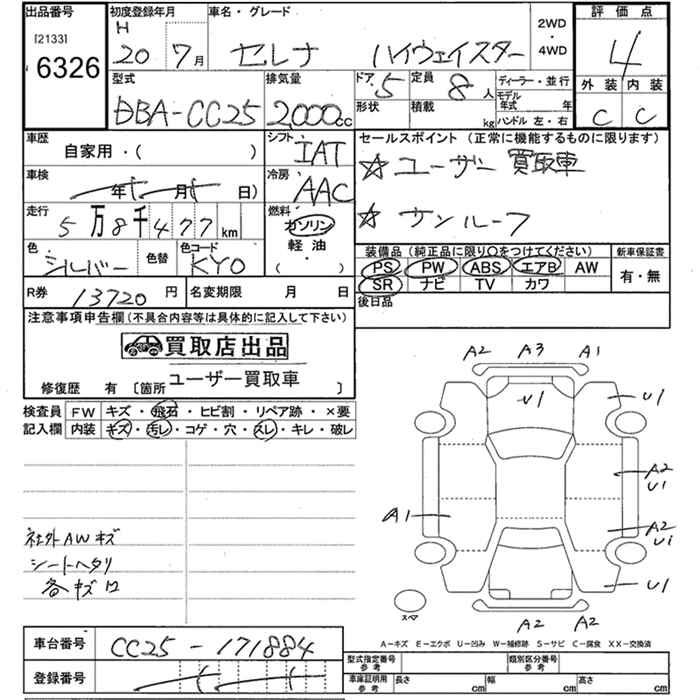 出品番号 初度登録年月 車名・グレード 2WD ・ 4WD 評価点
[2133] 6326
H 20 7月 セレナ ハイウェイスター 4
型式 排気量 ドア 5 定員 8人 ディーラー・並行 外装 内装
DBA-CC25 2,000cc 形状 積載 kg モデル年式 年 ハンドル 左・右 C C
車歴 自家用・( )
シフト IAT
セールスポイント (正常に機能するものに限ります)
☆ ユーザー買取車
☆ サンルーフ
車検 年 月 日)
冷房 AAC
走行 5万8千477km
燃料 ガソリン 軽油 ( )
色 シルバー 色替 色コード KY0
装備品 (純正品に限り○をつけてください) 新車保証書
PS PW ABS エアB AW 有・無
SR ナビ TV カワ
R券 13720円 名変期限 月 日
後日品
注意事項申告欄(不具合内容等は具体的に記入して下さい)
買取店出品
ユーザー買取車
修復歴 有 [箇所 ]
検査員 FW キズ・飛石・ヒビ割・リペア跡・×要
記入欄 内装 キズ・汚レ・コゲ・穴・スレ・キレ・破レ
A2 A3 A1
U1 U1
A2
U1
A1
A2
U1
U1
スペア
A2 A2
社外AWキズ
シートヘタリ
各キズロ
A-キズ E-エクボ U-凹み W-補修跡 S-サビ C-腐食 XX-交換済
車台番号 CC25-171884
登録番号
型式指定番号 参考 類別区分番号 参考
車庫証明用 参考 長さ cm 幅 cm 高さ cm